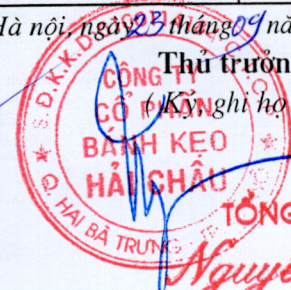 Hà nội, ngày 23 tháng 09 nă
Thủ trưởn
(Ký, ghi họ
CÔNG TY
CỔ PHẦN
BÁNH KẸO
HẢI CHÂU
Q. HAI BÀ TRƯNG
TỔNG
Nguyễ